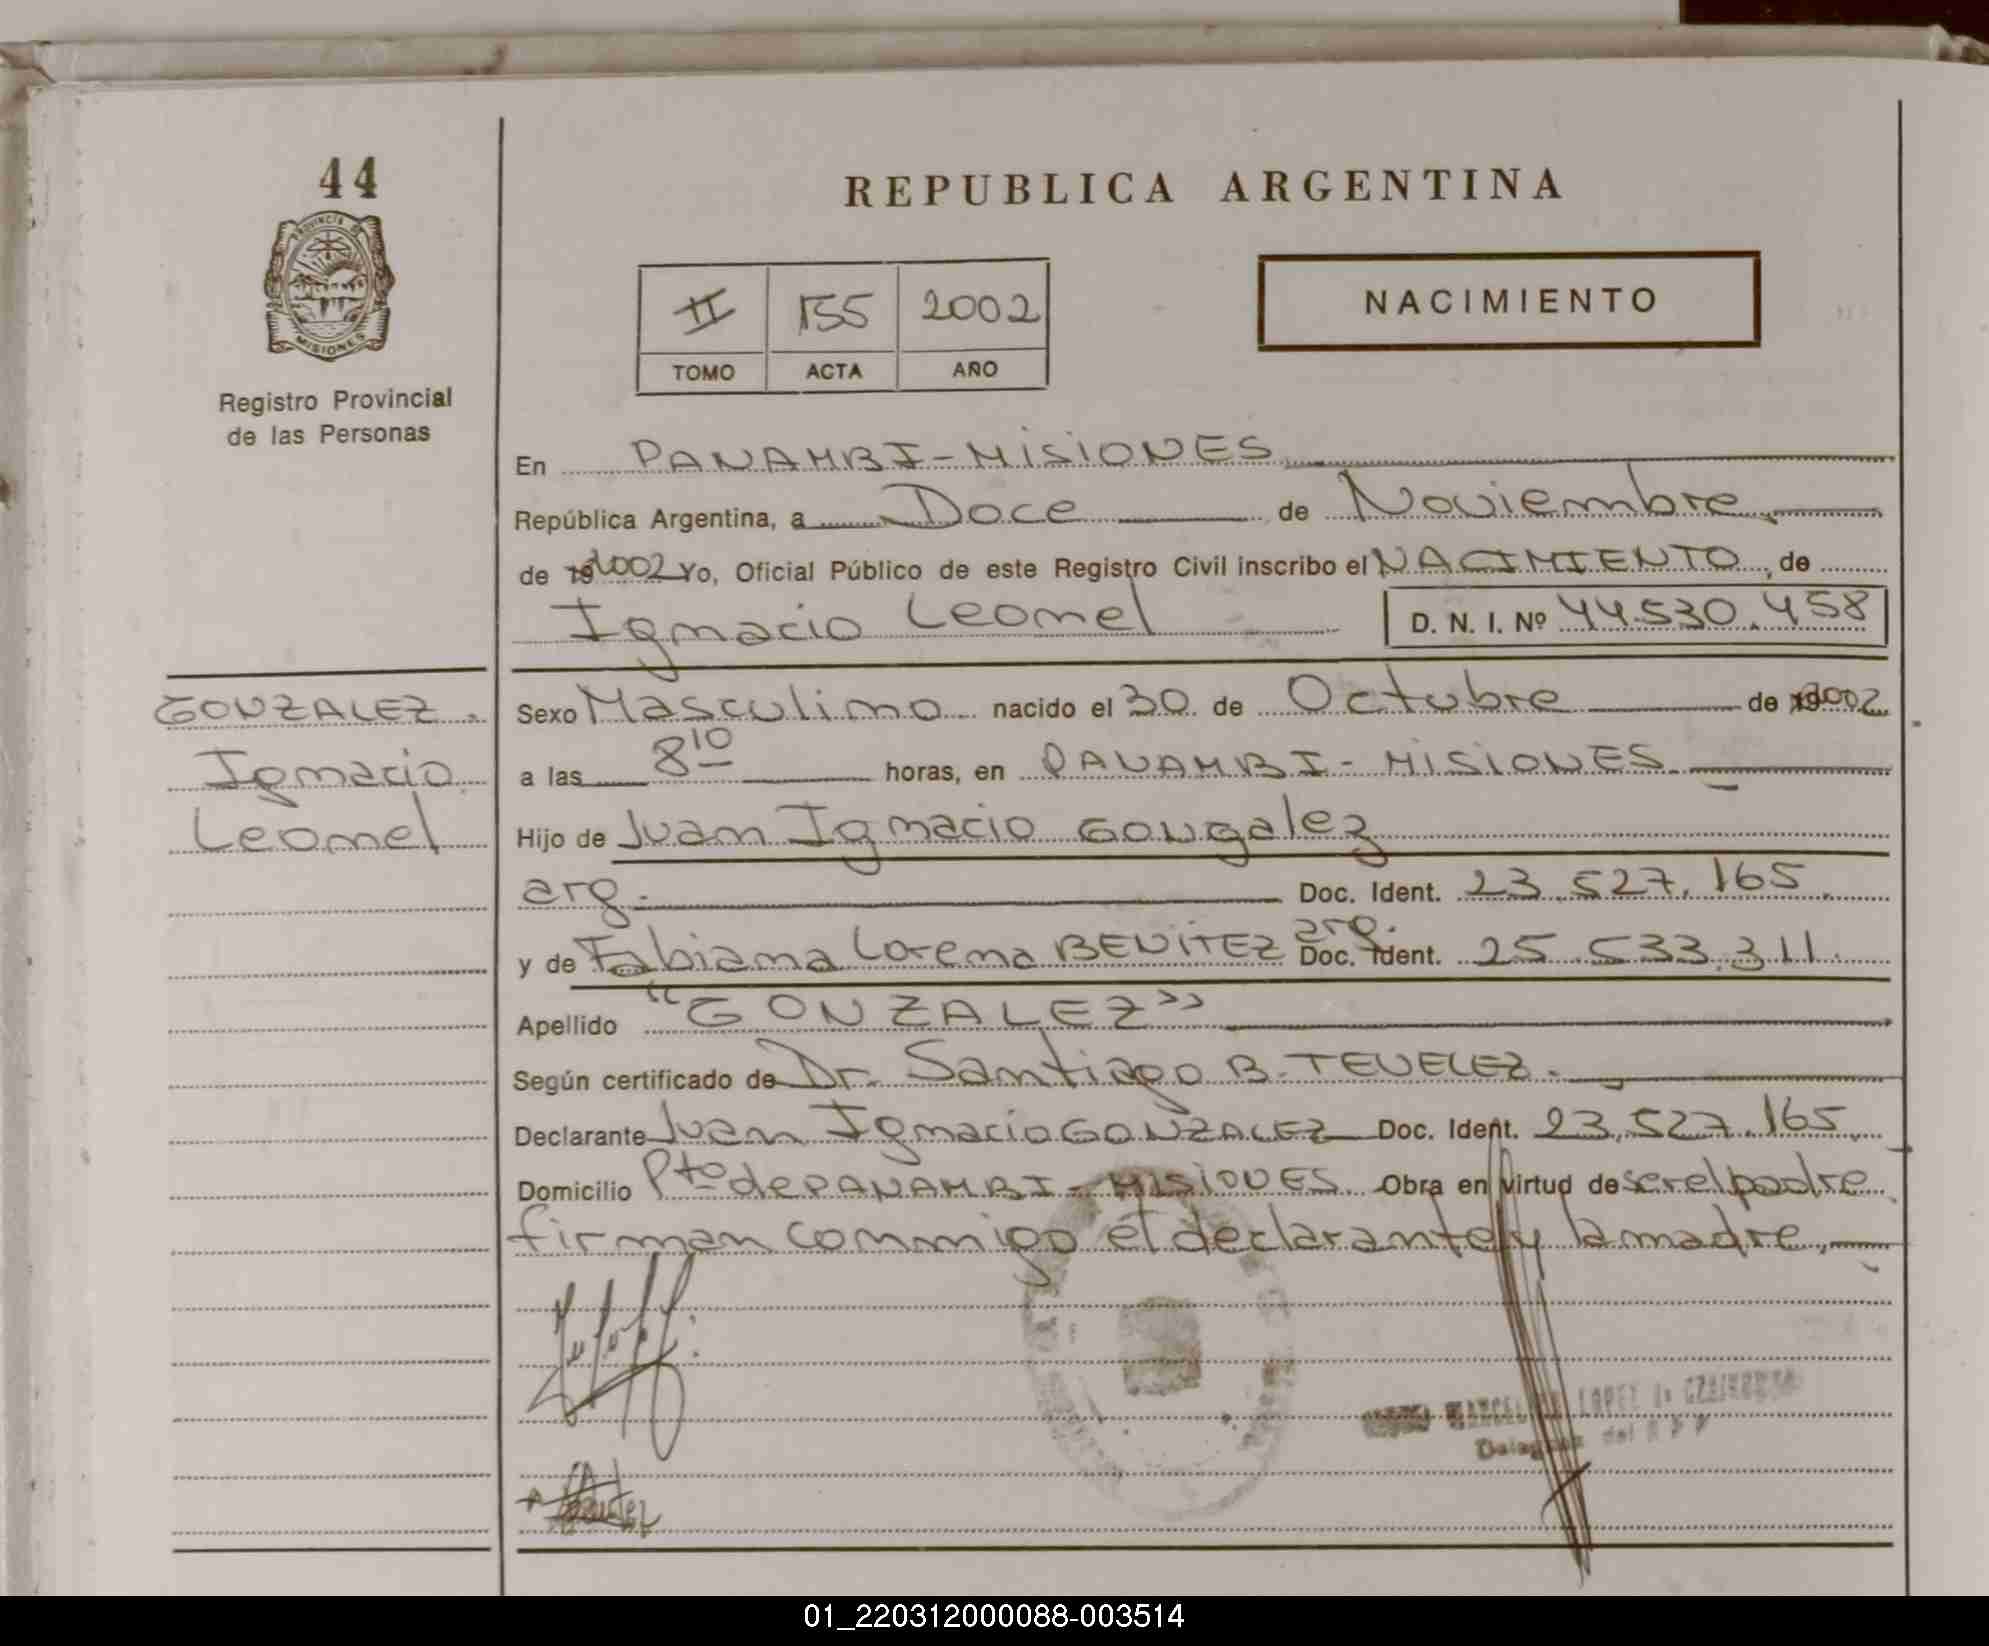 44
PROVINCIA DE
MISIONES
Registro Provincial
de las Personas
REPUBLICA ARGENTINA
II 155 2002
TOMO ACTA AÑO
NACIMIENTO
En PANAMBI - MISIONES
República Argentina, a Doce de Noviembre
de 19 2002 Yo, Oficial Público de este Registro Civil inscribo el NACIMIENTO, de
Ignacio Leonel D. N. I. Nº 44.530.458
GONZALEZ.
Ignacio
Leonel
Sexo Masculino nacido el 30 de Octubre de 19 2002
a las 8 10 horas, en PANAMBI - MISIONES
Hijo de Juan Ignacio GONzalez
arg. Doc. Ident. 23.527.165.
y de Fabiana Lorena BENITEZ arg. Doc. Ident. 25.533.311.
Apellido "GONZALEZ"
Según certificado de Dr. Santiago B. TEVELEZ.
Declarante Juan Ignacio GONZALEZ Doc. Ident. 23.527.165
Domicilio Pto de PANAMBI - MISIONES Obra en virtud de ser el padre
firman conmigo el declarante y la madre.
LOPEZ
del
01_220312000088-003514